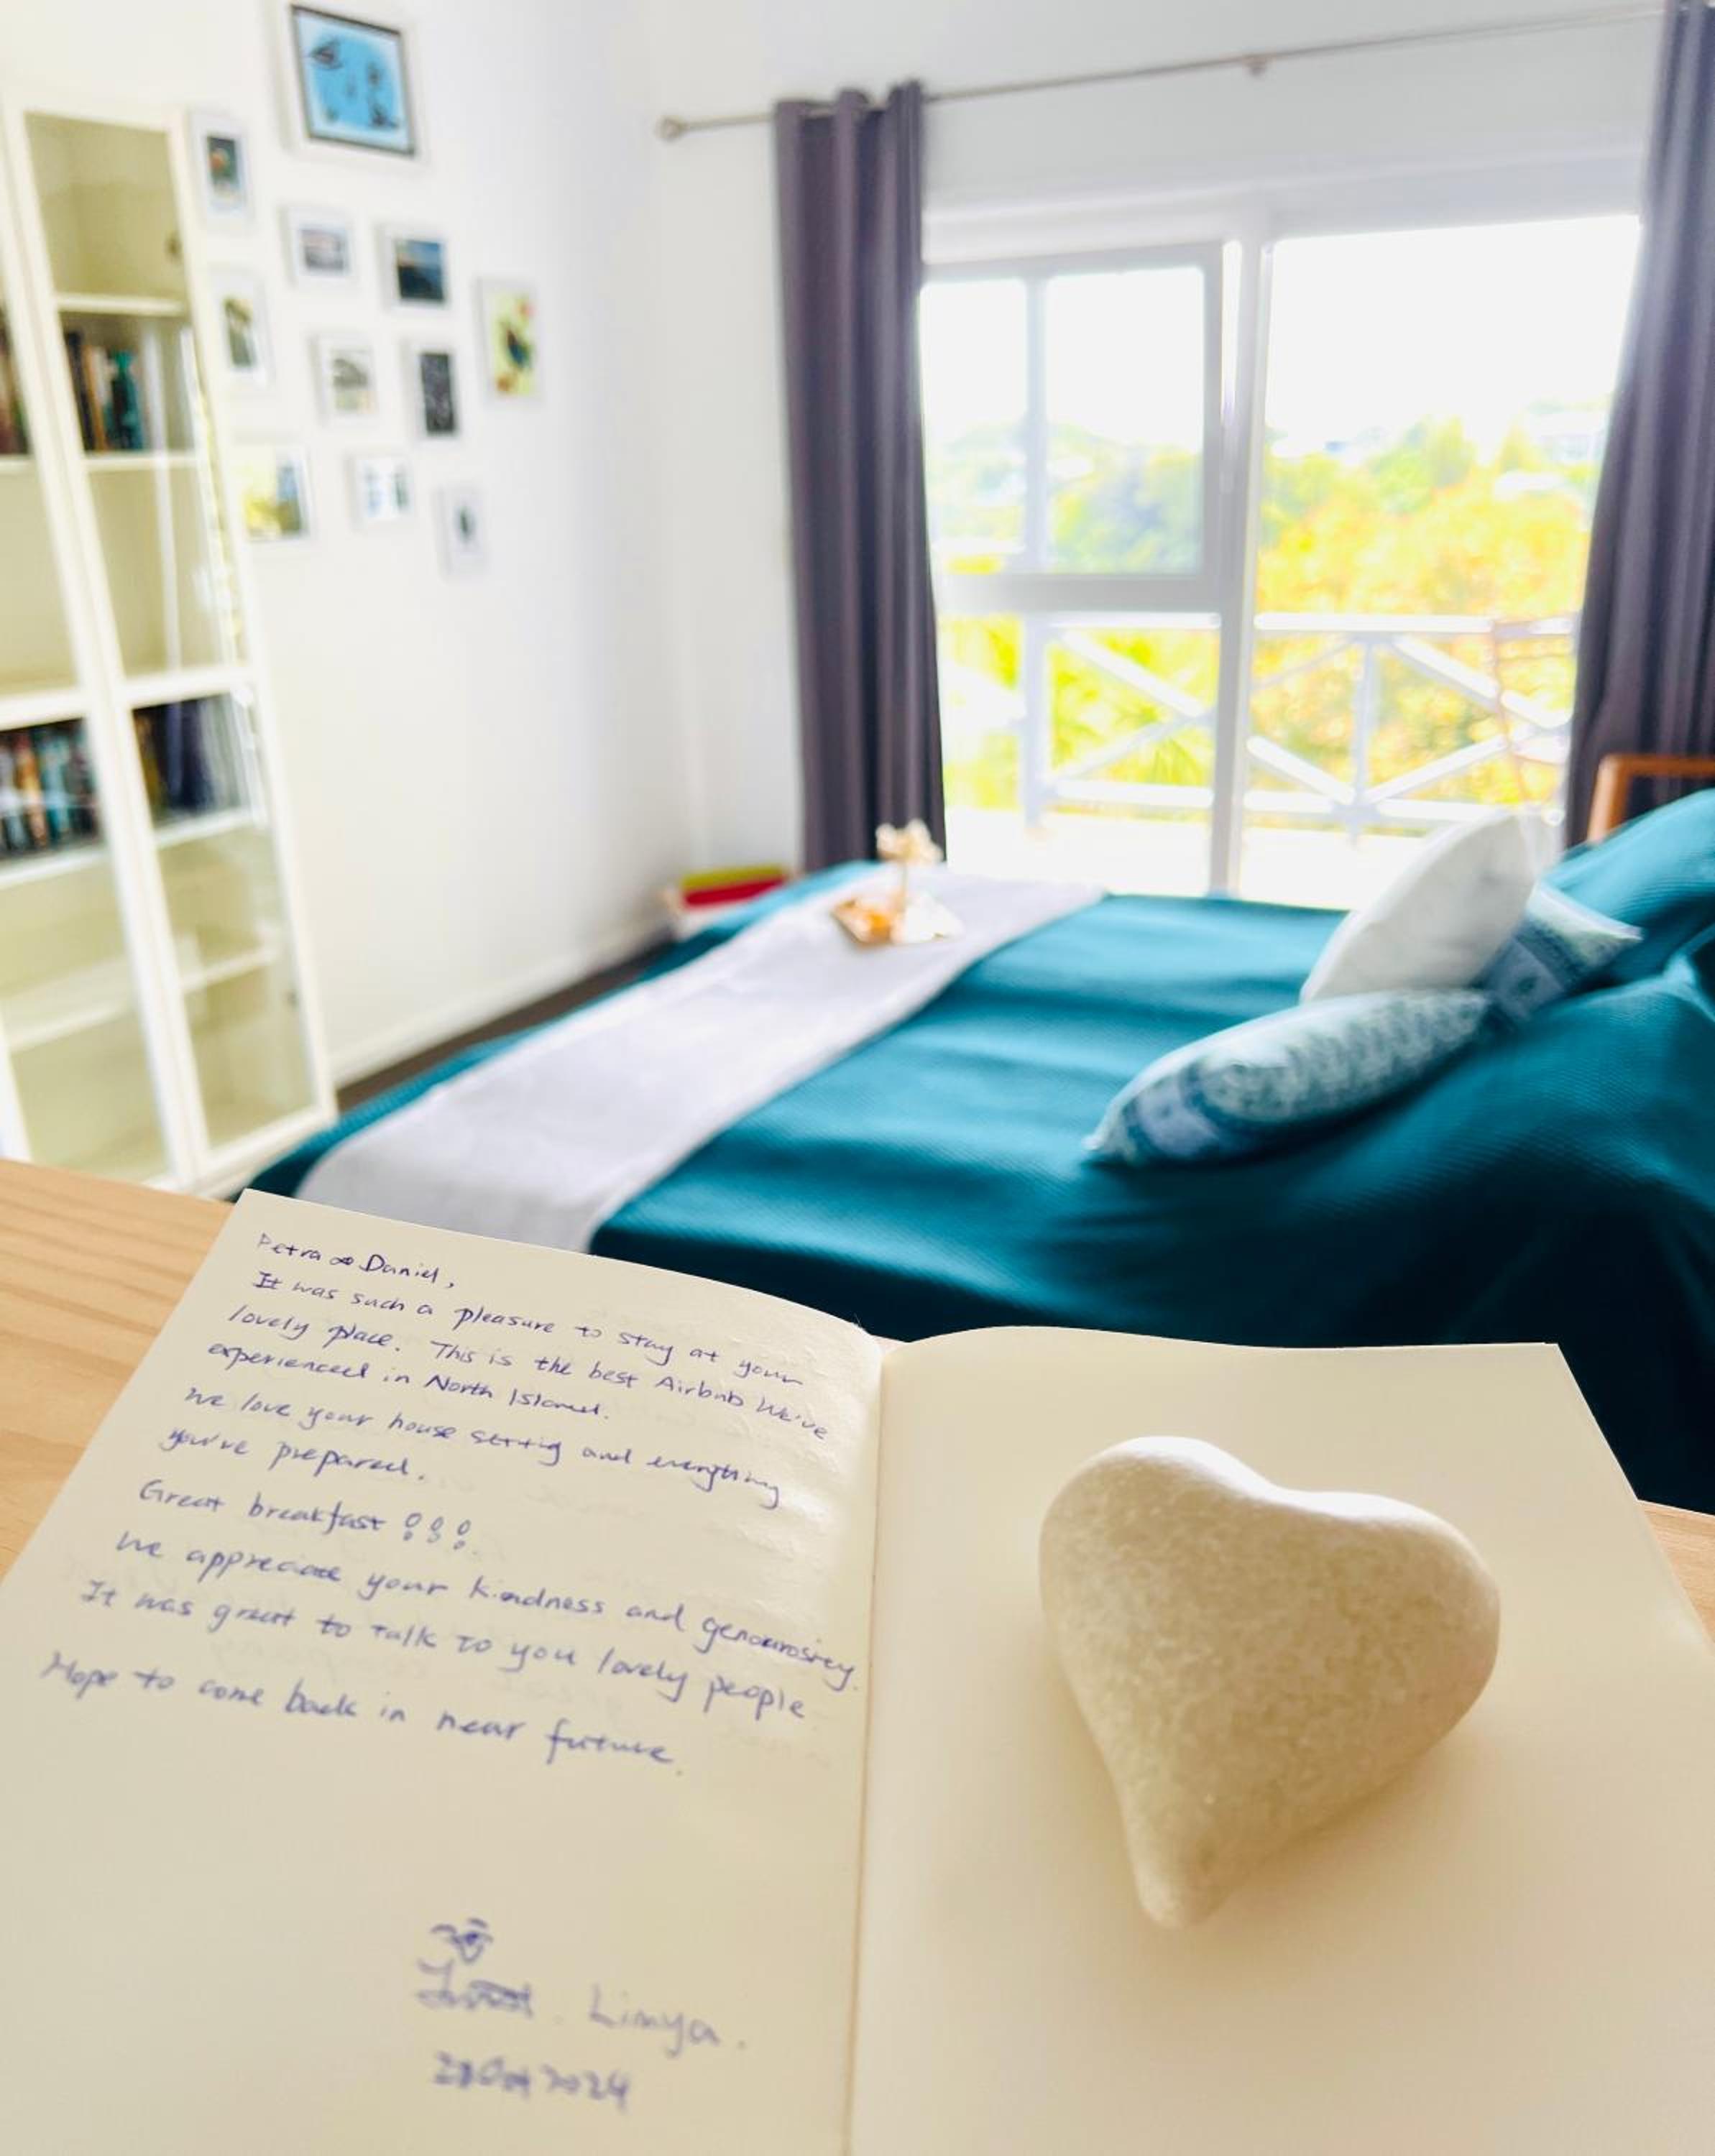 Petra & Daniel,
It was such a pleasure to stay at your
lovely place. This is the best Airbnb We've
experienced in North Island.
We love your house setting and everything
you've prepared.
Great breakfast !!!
We appreciate your kindness and generousity.
It was great to talk to you lovely people
Hope to come back in near future.
Limya.
2024